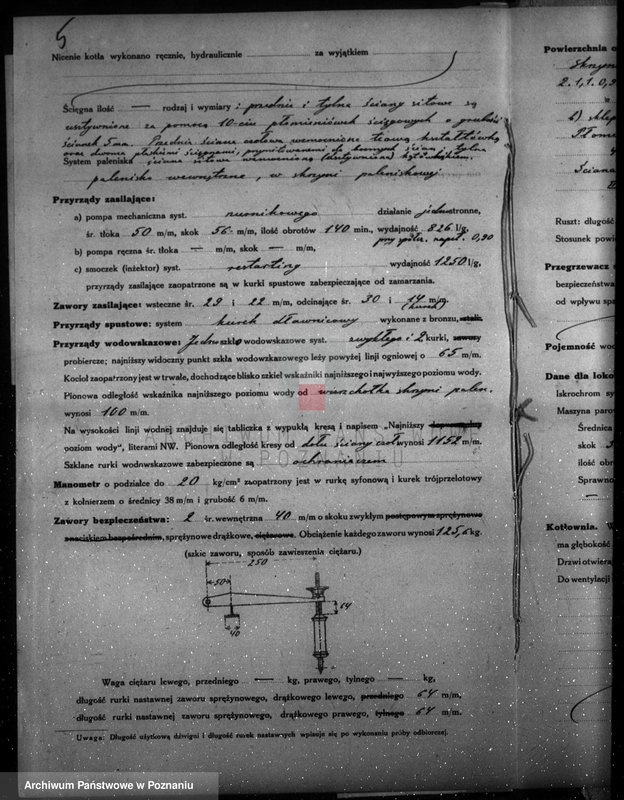 5
Nicenie kotła wykonano ręcznie, hydraulicznie za wyjątkiem
Ścięgna ilość — rodzaj i wymiary: przednie i tylne ściany sitowe są
usztywnione za pomocą 10-ciu płomieniówek ścięgowych o grubości
ścianek 5 mm. Przednia ściana czołowa wzmocniona teową kształtówką
oraz dwoma płaskimi ścięgnami, przynitowanemi do bocznych ścian i tylna
System paleniska ściana sitowa wzmocniona (usztywniona) kątównikiem.
palenisko wewnętrzne, w skrzyni paleniskowej
Przyrządy zasilające:
a) pompa mechaniczna syst. nurnikowego działanie jednostronne,
śr. tłoka 50 m/m, skok 56 m/m, ilość obrotów 140 min., wydajność 826 l/g,
przy współ. napeł. 0,90
b) pompa ręczna śr. tłoka — m/m, skok — m/m,
c) smoczek (inżektor) syst. restarting wydajność 1250 l/g,
przyrządy zasilające zaopatrzone są w kurki spustowe zabezpieczające od zamarzania.
Zawory zasilające: wsteczne śr. 23 i 22 m/m, odcinające śr. 30 i 14 m/m.
(kurek)
Przyrządy spustowe: system kurek dławnicowy wykonane z bronzu, stali.
Przyrządy wodowskazowe: Jedno szkło wodowskazowe syst. zwykłego i 2 kurki, zawory
probiercze; najniższy widoczny punkt szkła wodowzkazowego leży powyżej linji ogniowej o 65 m/m.
Kocioł zaopatrzony jest w trwałe, dochodzące blisko szkieł wskaźniki najniższego i najwyższego poziomu wody.
Pionowa odległość wskaźnika najniższego poziomu wody od wierzchołka skrzyni palen.
wynosi 100 m/m.
Na wysokości linji wodnej znajduje się tabliczka z wypukłą kresą i napisem „Najniższy dopuszczalny
poziom wody", literami NW. Pionowa odległość kresy od dołu ściany czoł. wynosi 1152 m/m.
Szklane rurki wodnwskazowe zabezpieczone są ochraniaczem
Manometr o podziałce do 20 kg/cm² zaopatrzony jest w rurkę syfonową i kurek trójprzelotowy
z kołnierzem o średnicy 38 m/m i grubość 6 m/m.
Zawory bezpieczeństwa: 2 śr. wewnętrzna 40 m/m o skoku zwykłym postępowym sprężynowe
znaciskiem bezpośrednim, sprężynowe drążkowe, ciężarowe. Obciążenie każdego zaworu wynosi 125,6 kg.
(szkic zaworu, sposób zawieszenia ciężaru.)
250
50
64
40
Waga ciężaru lewego, przedniego — kg, prawego, tylnego — kg,
długość rurki nastawnej zaworu sprężynowego, drążkowego lewego, przedniego 64 m/m,
długość rurki nastawnej zaworu sprężynowego, drążkowego prawego, tylnego 64 m/m.
Uwaga: Długość użytkową dźwigni i długość rurek nastawnych wpisuje się po wykonaniu próby odbiorczej.
Powierzchnia o
skrzyn
2.1,1.0,9
b) sklep
Płom
Ściana
Ruszt: długość
Stosunek powi
Przegrzewacz
bezpieczeństwa
od wpływu spa
Pojemność wod
Dane dla loko
Iskrochron sy
Maszyna paro
Średnica
skok
ilość obro
Sprawno
—
Kotłownia. W
ma głębokość
Drzwi otwiera
Do wentylacji
POZNANIU
Archiwum Państwowe w Poznaniu